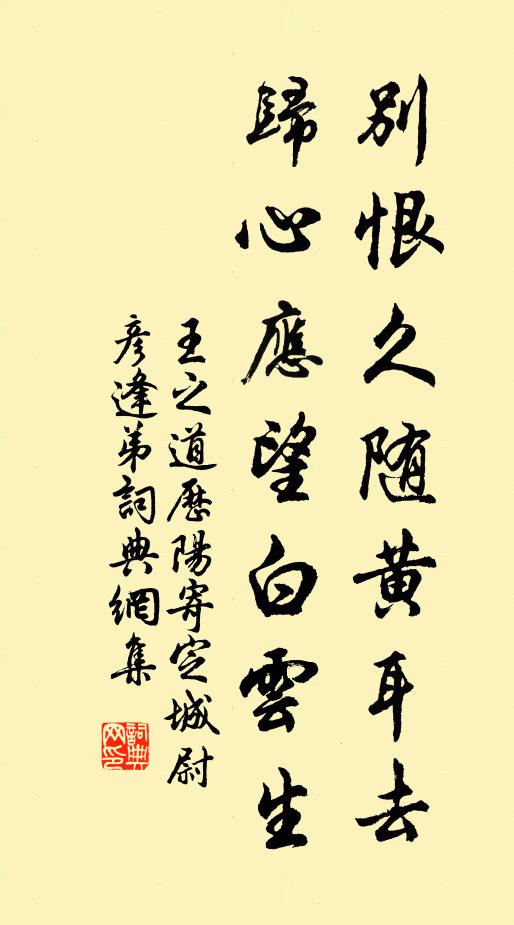 別恨久随黄耳去
歸心應望白雲生
王之道歷陽寄定城尉
彦逢弟詞典網集
詞典網印